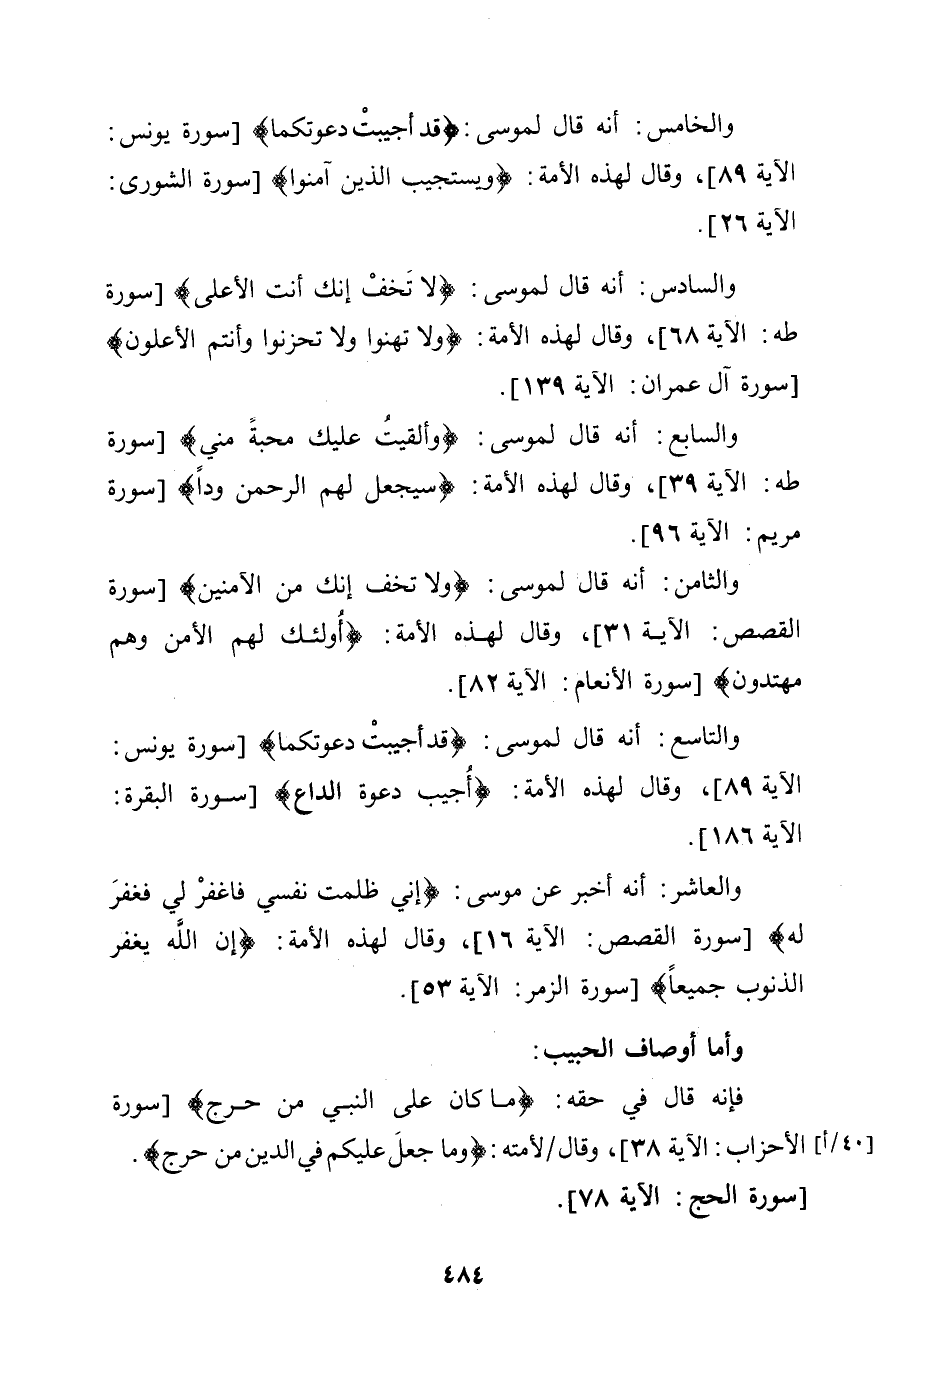 والخامس: أنه قال لموسى: ﴿قد أجيبتْ دعوتكما﴾ [سورة يونس:
الآية ٨٩]، وقال لهذه الأمة: ﴿ويستجيب الذين آمنوا﴾ [سورة الشورى:
الآية ٢٦].
والسادس: أنه قال لموسى: ﴿لا تَخفْ إنك أنت الأعلى﴾ [سورة
طه: الآية ٦٨]، وقال لهذه الأمة: ﴿ولا تهنوا ولا تحزنوا وأنتم الأعلون﴾
[سورة آل عمران: الآية ١٣٩].
والسابع: أنه قال لموسى: ﴿وألقيتُ عليك محبةً مني﴾ [سورة
طه: الآية ٣٩]، وقال لهذه الأمة: ﴿سيجعل لهم الرحمن وداً﴾ [سورة
مريم: الآية ٩٦].
والثامن: أنه قال لموسى: ﴿ولا تخف إنك من الآمنين﴾ [سورة
القصص: الآية ٣١]، وقال لهذه الأمة: ﴿أُولئك لهم الأمن وهم
مهتدون﴾ [سورة الأنعام: الآية ٨٢].
والتاسع: أنه قال لموسى: ﴿قد أجيبتْ دعوتكما﴾ [سورة يونس:
الآية ٨٩]، وقال لهذه الأمة: ﴿أُجيب دعوة الداع﴾ [سورة البقرة:
الآية ١٨٦].
والعاشر: أنه أخبر عن موسى: ﴿إني ظلمت نفسي فاغفرْ لي فغفرَ
له﴾ [سورة القصص: الآية ١٦]، وقال لهذه الأمة: ﴿إن اللَّه يغفر
الذنوب جميعاً﴾ [سورة الزمر: الآية ٥٣].
وأما أوصاف الحبيب:
فإنه قال في حقه: ﴿ما كان على النبي من حرج﴾ [سورة
[٤٠/أ] الأحزاب: الآية ٣٨]، وقال/لأمته: ﴿وما جعلَ عليكم في الدين من حرج﴾.
[سورة الحج: الآية ٧٨].
٤٨٤